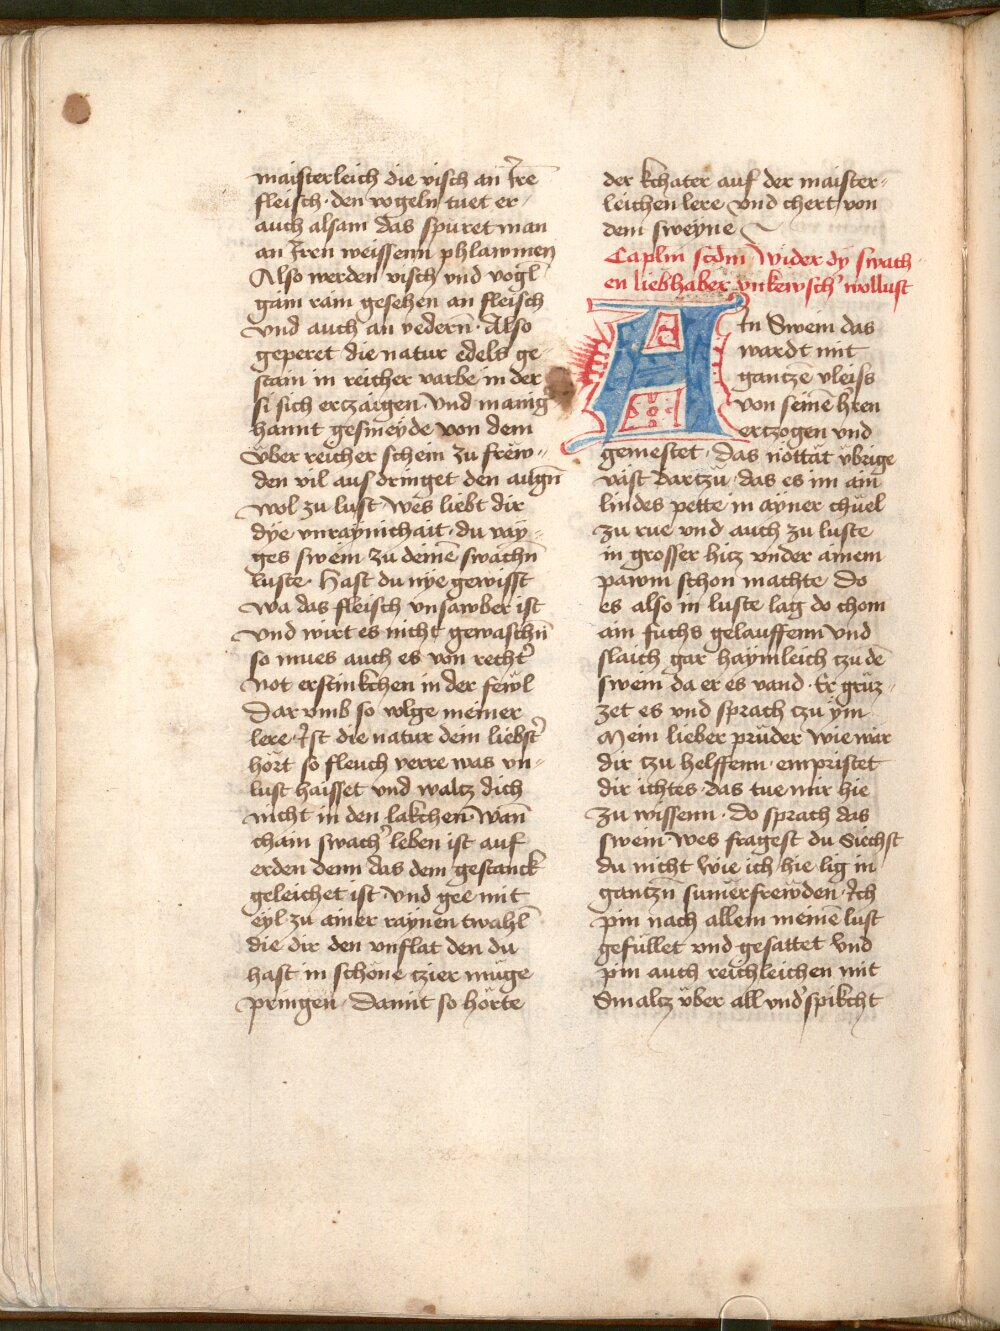 maisterleich die visch an Irē
fleisch · den vogeln tuet er
auch alsam das spüret man
an Iren weissenn phlawmen
Also werden visch vnd vogl
gām rain gesehen an fleisch
vnd auch an vedern̄ · Also
geperet die natur edels ge⸗
stain in reicher varbe in der
si sich ertzaigen · vnd manig
hannt gesmeyde von dem
v̈ber reicher schein zu frëw⸗
den vil aus dringet den augn̄
wol zu lust · wes liebt dir
dÿe vnraynichait · du vay⸗
ges swein zu deinē swachn̄
luste · Hast du nye gewisst
wa das fleisch vnsawber ist
vnd wirt es nicht gewaschn̄
so mues auch es von recht̾
not erstinkchen in der fewl
Dar vmb so volge meiner
lere · Ist die natur dein liebst̾
hort so fleuch verre was vn⸗
lust haisset vnd waltz dich
nicht in den lakchen̄ · wan̄
chain swach̾ leben ist auf
erden denn das dem gestanck
geleichet ist · Vnd gee mit
eyl zu ainer raynen twahl
die dir den vnflat den du
hast in schöne tzier müge
pringen · Damit so hörte
der kchater auf der maister⸗
leichen lere vnd chert von
dem sweyne
Caplm̄ scdm̄ Wider dy swach
en liebhaber vnkewsch̾ wollust
Ain Swein das
wardt mit
gantzē vleiss
von seinē h̾ren
ertzogen vnd
gemestet · das nöttät vbrige
väst dartzu · das es im ain
lindes pette in ayner chüel
zu rue vnd auch zu luste
in grosser hitz vnder ainem
pawm schon machte · Do
es also in luste lag do chom
ain fuchs gelauffenn vnd
slaich gar haymleich tzu dē
swein da er es vand · Er grüz⸗
zet es vnd sprach tzu ÿm
Mein lieber prüder wie war
dir tzu helffenn · empristet
dir ichtes · das tue mir hie
zu wissenn · Do sprach das
swein · wes fragest du Siechst
du nicht wie ich hie lig in
gantzn̄ sumerfrewden · Ich
pin nach allem meinē lust
gefüllet vnd gesattet Vnd
pin auch reichleichen mit
Smaltz über all vnd̾spikcht